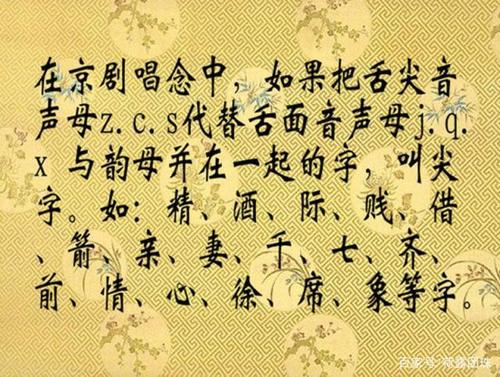 在京剧唱念中，如果把舌尖音
声母z.c.s代替舌面音声母j.q.
x 与韵母并在一起的字，叫尖
字。如：精、酒、际、贱、借
、箭、亲、妻、千、七、齐、
前、情、心、徐、席、象等字。
百家号